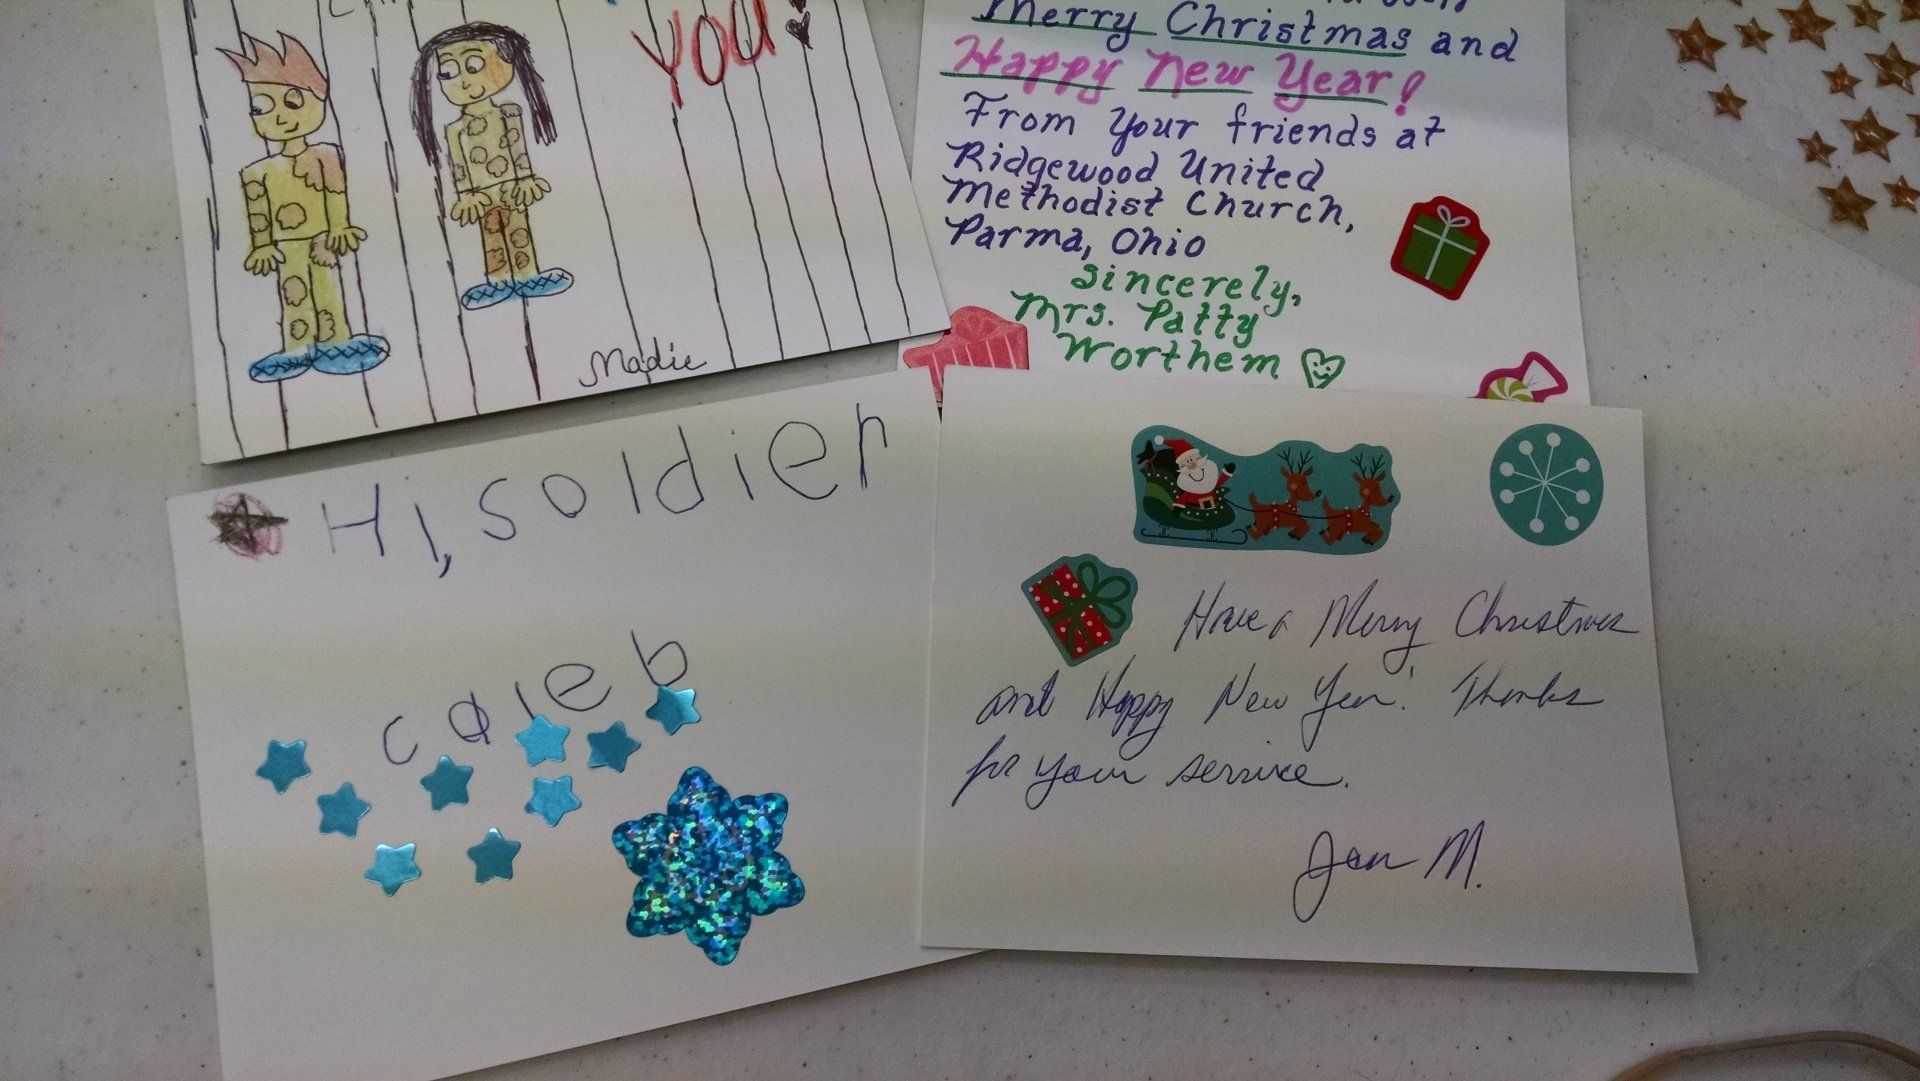 YOU
Madie
Merry Christmas and
Happy New Year!
From your friends at
Ridgewood United
Methodist Church,
Parma, Ohio
Sincerely,
Mrs. Patty
Worthem
Hi, soldier
caleb
Have a Merry Christmas
and Happy New Year! Thanks
for your service.
Jan M.